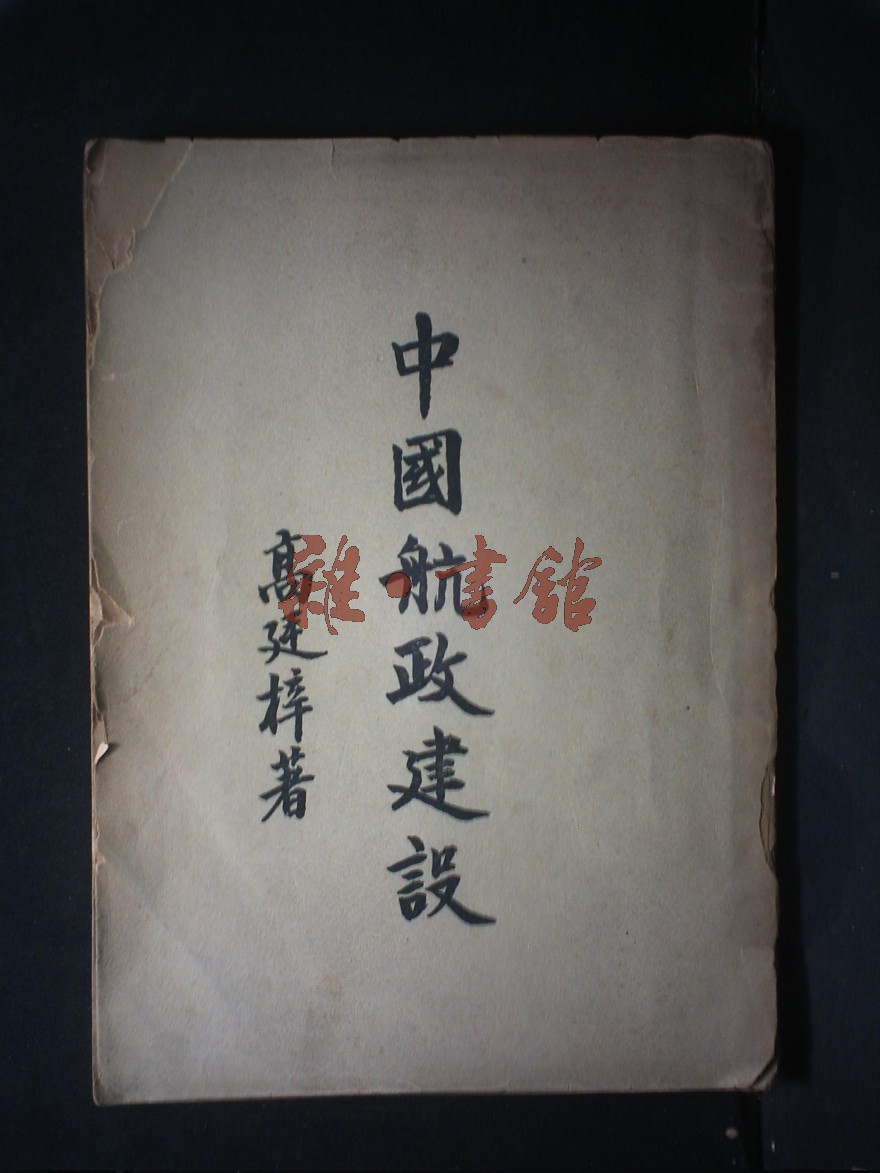 中國航政建設
高廷梓著
雜·書館